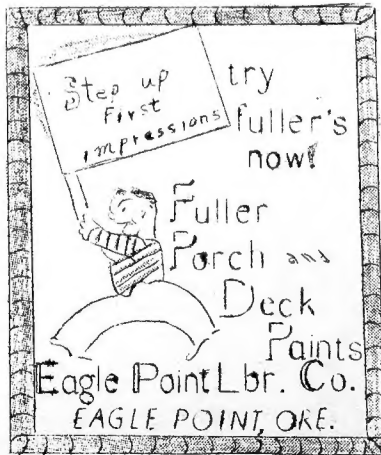 Step up
First
impressions
try
fuller's
now!
Fuller
Porch and
Deck
Paints
Eagle Point Lbr. Co.
EAGLE POINT, ORE.